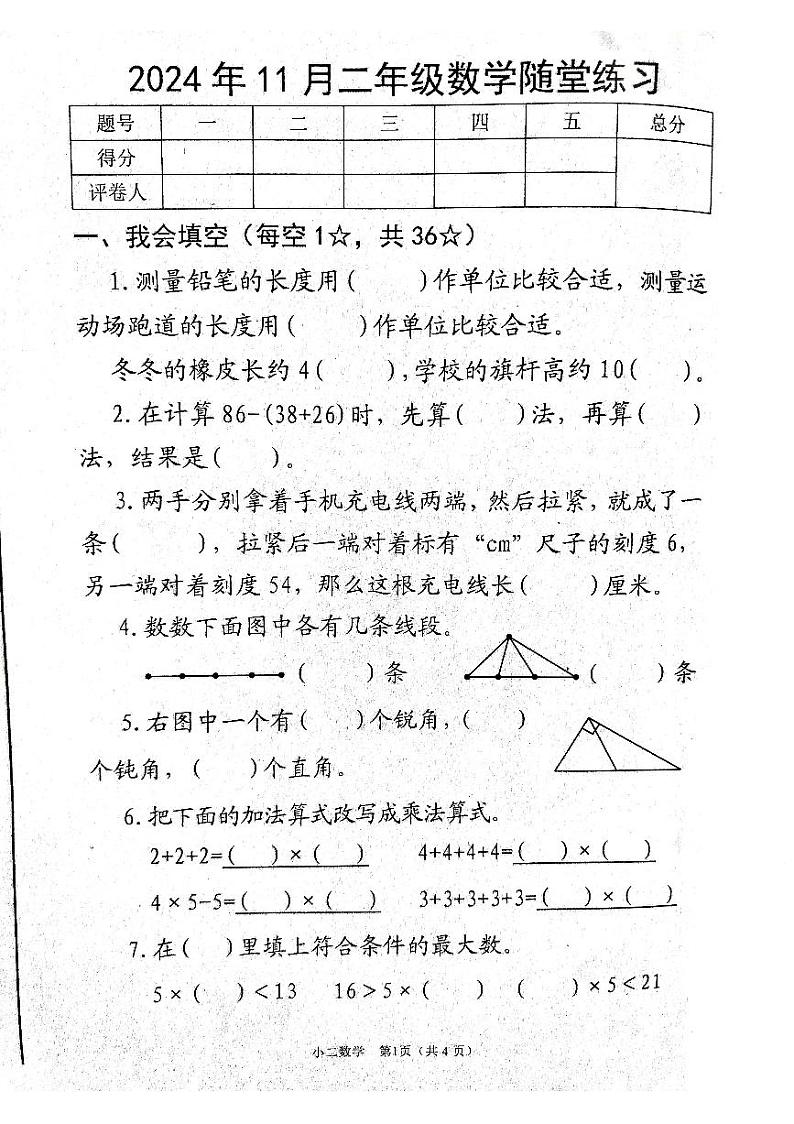 2024年11月二年级数学随堂练习
题号 一 二 三 四 五 总分
得分
评卷人
一、我会填空（每空1☆，共36☆）
1.测量铅笔的长度用( )作单位比较合适，测量运
动场跑道的长度用( )作单位比较合适。
冬冬的橡皮长约4( ),学校的旗杆高约10( )。
2.在计算86-(38+26)时，先算( )法，再算( )
法，结果是( )。
3.两手分别拿着手机充电线两端，然后拉紧，就成了一
条( )，拉紧后一端对着标有“cm”尺子的刻度6，
另一端对着刻度54，那么这根充电线长( )厘米。
4.数数下面图中各有几条线段。
( )条 ( )条
5.右图中一个有( )个锐角，( )
个钝角，( )个直角。
6.把下面的加法算式改写成乘法算式。
2+2+2=( )×( ) 4+4+4+4=( )×( )
4×5-5=( )×( ) 3+3+3+3+3=( )×( )
7.在( )里填上符合条件的最大数。
5×( )＜13 16＞5×( ) ( )×5＜21
小二数学 第1页（共4页）